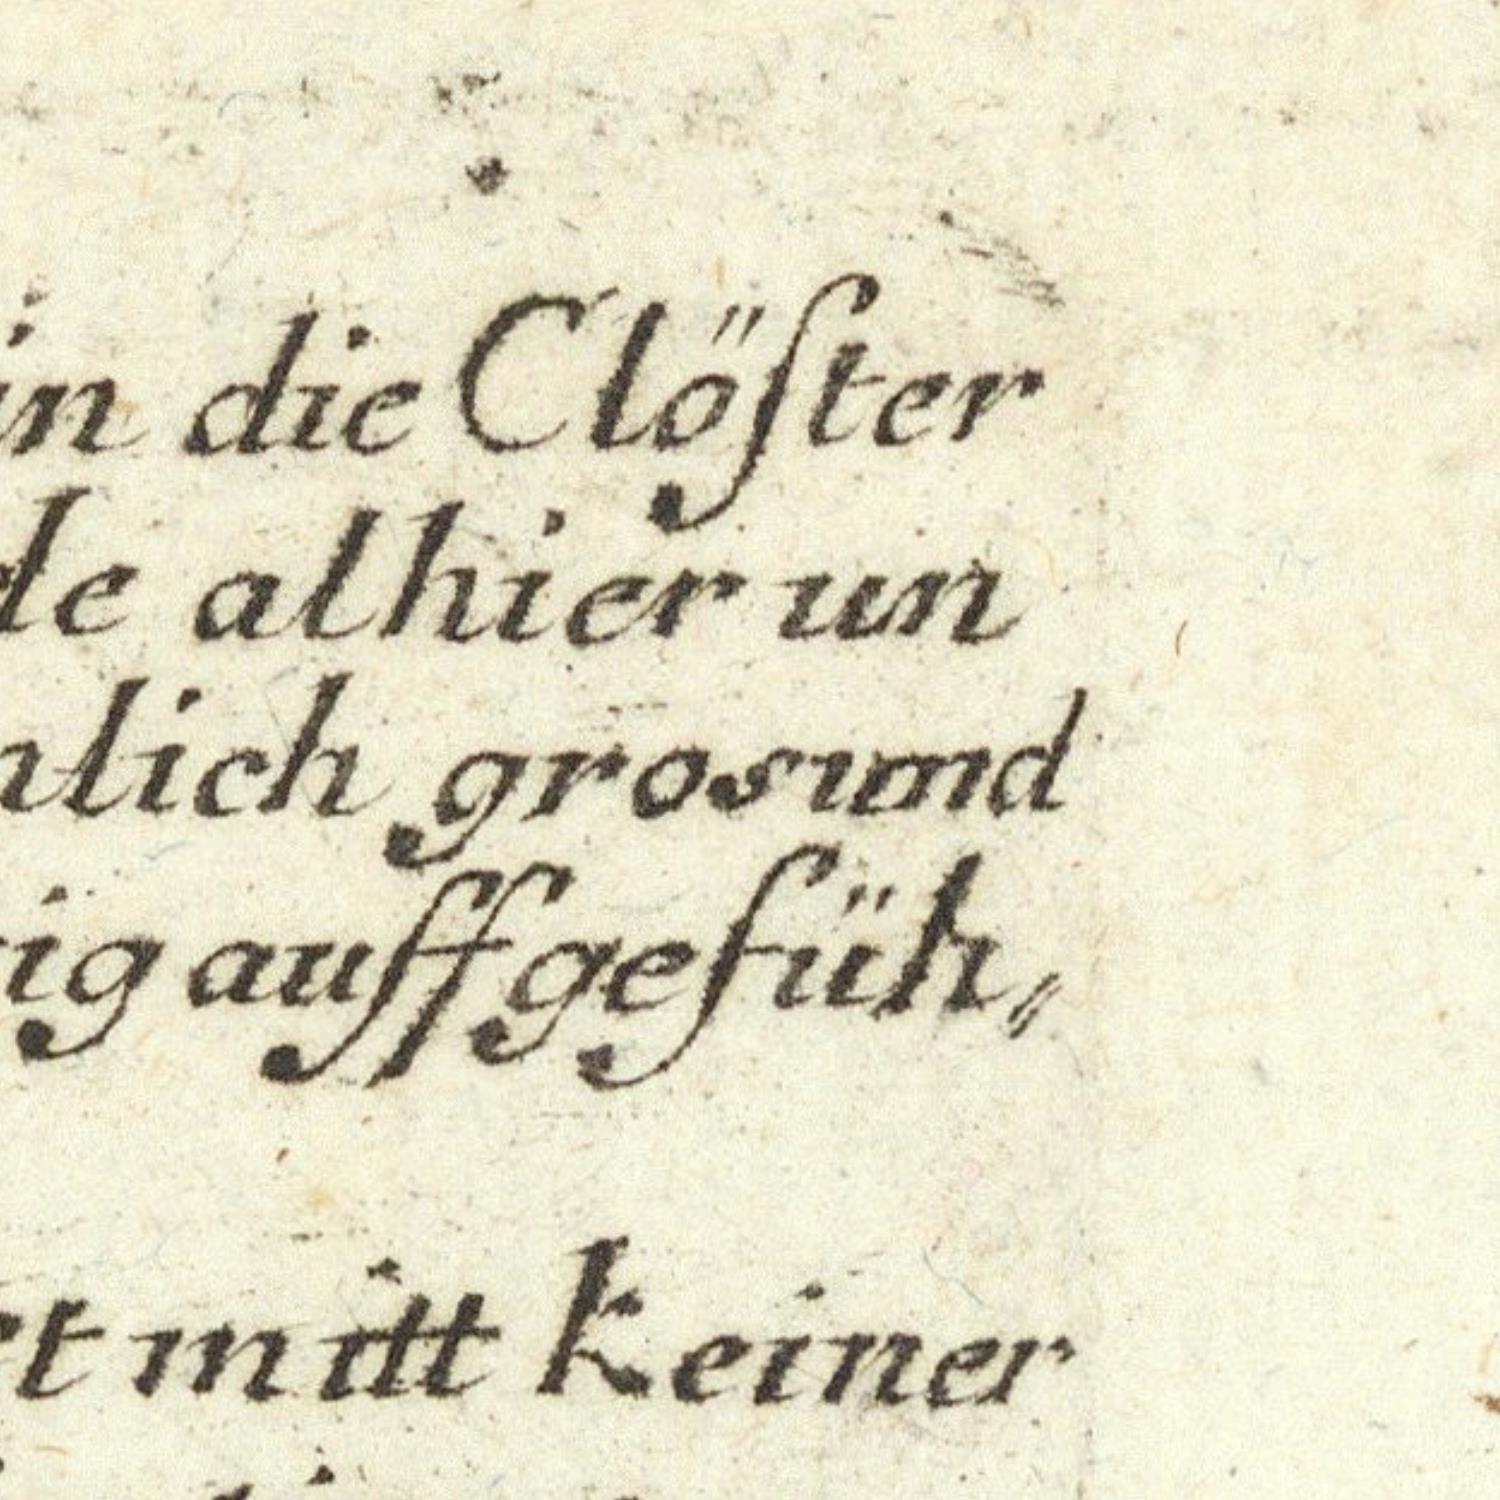 in die Clöſter
alhier un
gros und
auffgefüh⸗
mitt keiner